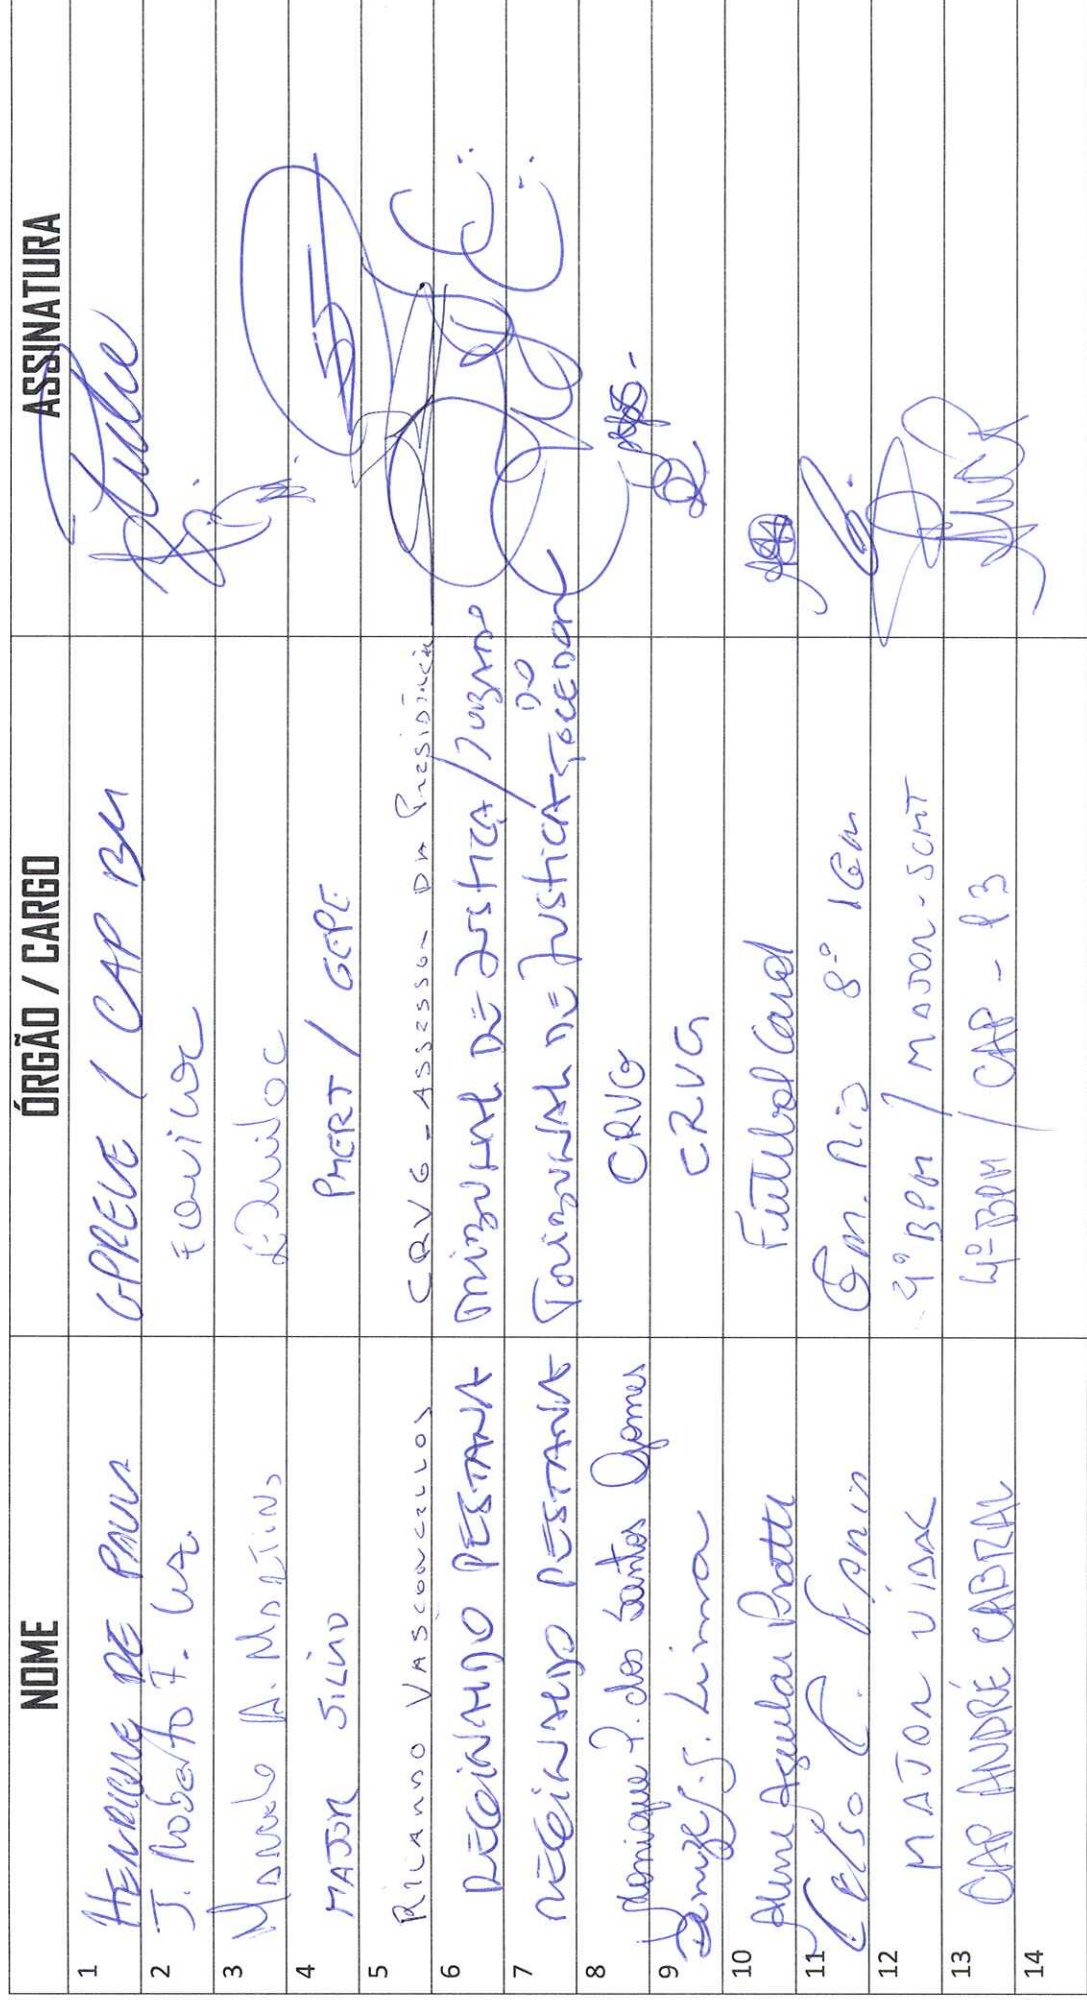 NOME ÓRGÃO / CARGO ASSINATURA
1 HENRIQUE DE PAULA GPREVE / CAP BM
2 J. Roberto F.
3 A. MARTINS
4 MAJOR SILVIO PMERJ / GEPE
5 RICARDO VASCONCELLOS CRVG - ASSESSOR DA PRESIDÊNCIA
6 REGINALDO PESTANA TRIBUNAL DE JUSTIÇA / JUIZADO
7 REGINALDO PESTANA TRIBUNAL DE JUSTIÇA DO TORCEDOR
8 Monique P. dos Santos Gomes CRVG
9 Denize S. Lima CRVG
10 Aline Aguilar Pratti Futebol Card
11 Celso C. FARIA GM. RIO 8º IGM
12 MAJOR VIDAL 4º BPM / MAJOR - SCMT
13 CAP ANDRÉ CABRAL 4º BPM / CAP - P3
14